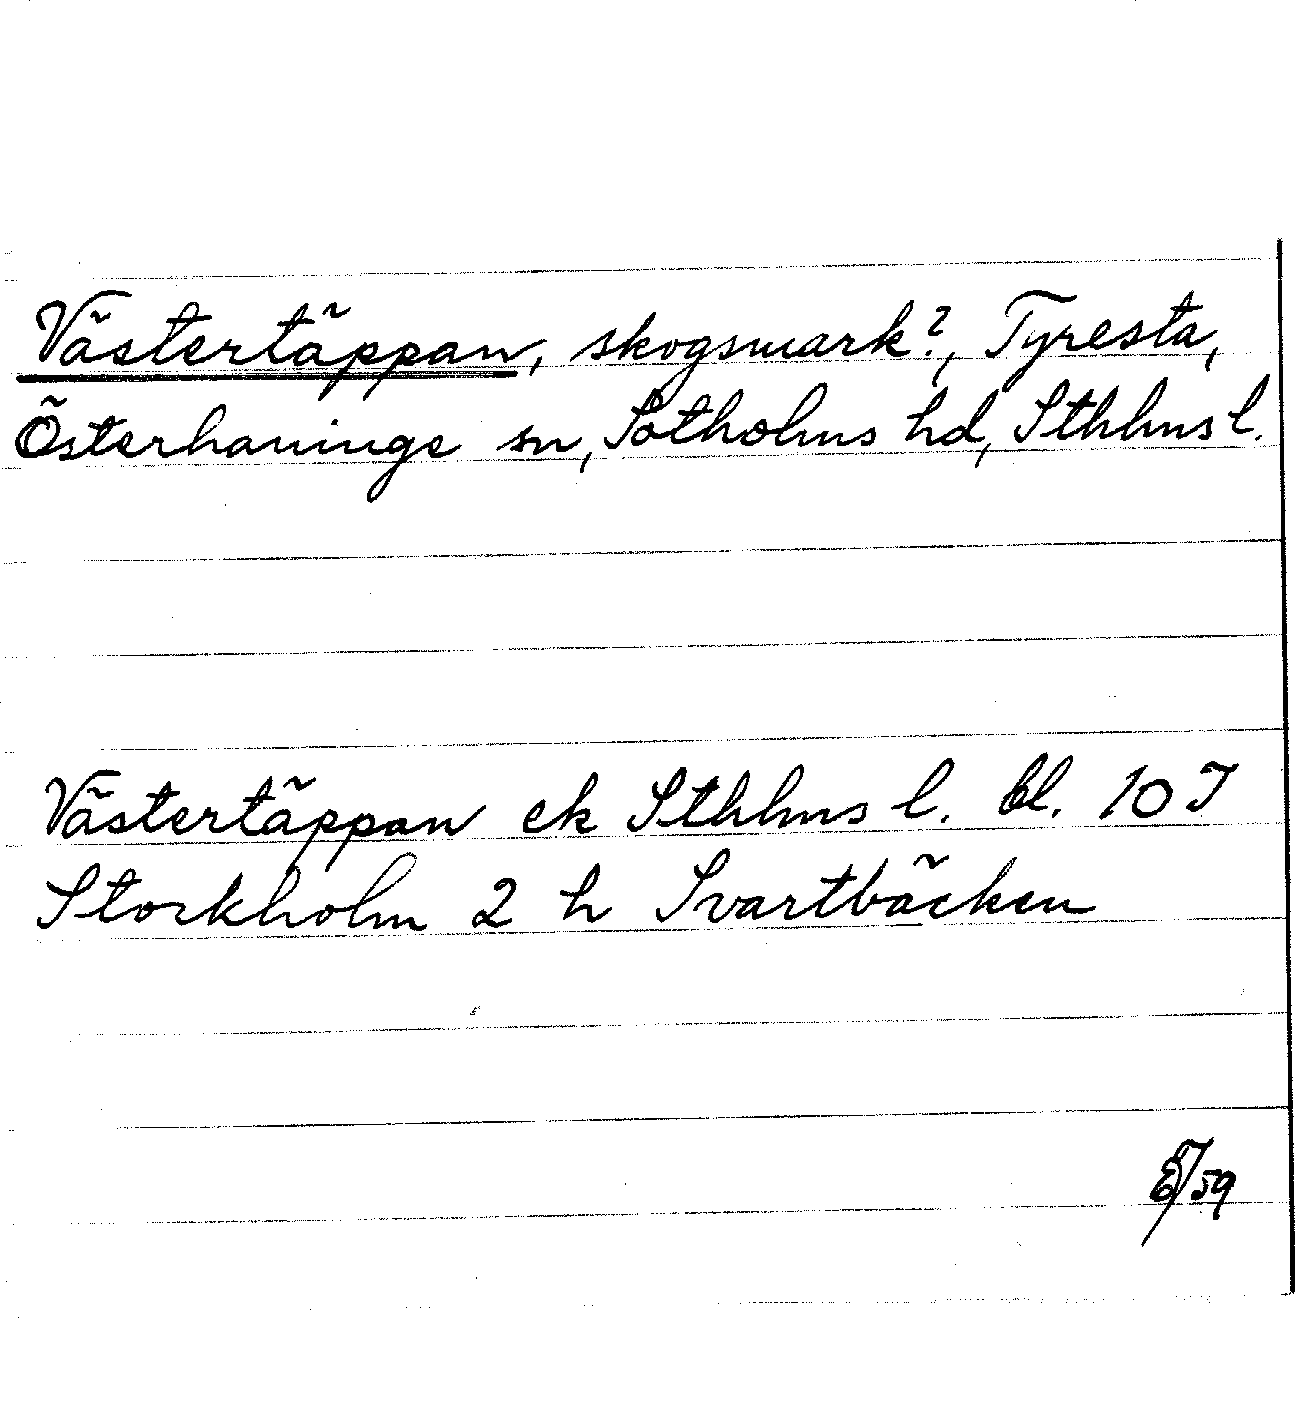 Västertäppan, skogsmark?, Tyresta,
Österhaninge sn, Sotholms hd, Sthlms l.
Västertäppan ek Sthlms l. bl. 10 I
Stockholm 2 h Svartbäcken
/59